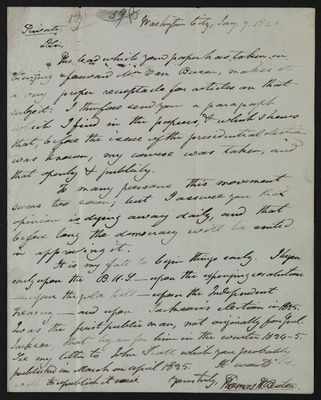 Private
Washington City, Jan 9. 1841
Sir,
The lead which your paper has taken in
bringing forward Mr. Van Buren, makes it
a very proper receptacle for articles on that
subject. I therefore send you a paragraph
which I find in the papers, & which shews
that, before the issue of the presidential election
was known, my course was taken, and
that openly & publicly.
To many persons this movement
seems too soon; but I assure you that
opinion is dying away daily, and that
before long the democracy will be united
in approving it.
It is my fate to begin things early. I began
early upon the B.U.S. — upon the expunging resolution
— upon the gold bill — upon the Independent
Treasury — and upon Jackson's election in 1825.
I was the first public man, not originally for Genl.
Jackson that began for him in the winter 1824-5.
See my letter to John Scott which you probably
published in March or April 1825. It would be
well to republish it now.
Yours truly, Thomas H. Benton